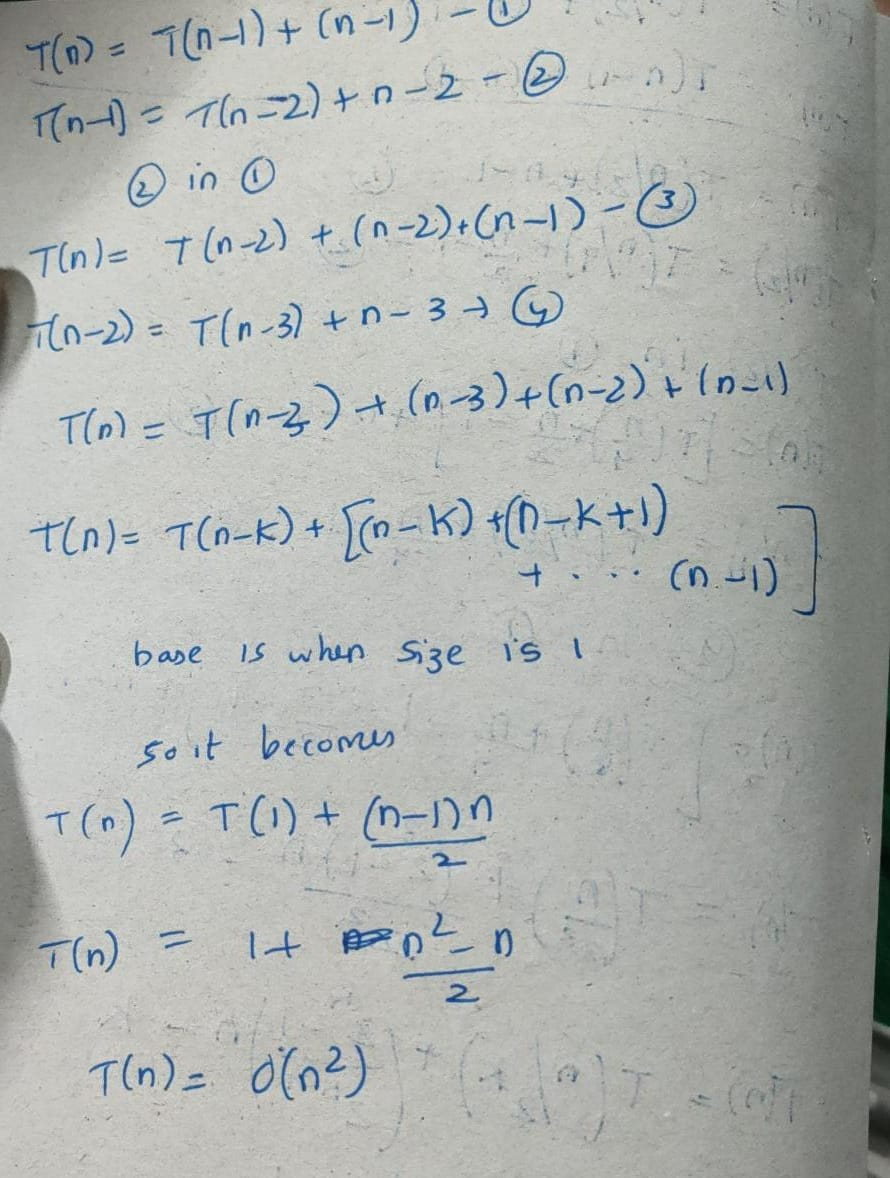 T(n) = T(n-1) + (n-1) - ①
T(n-1) = T(n-2) + n-2 - ②
② in ①
T(n) = T(n-2) + (n-2)+(n-1) - ③
T(n-2) = T(n-3) + n-3 → ④
T(n) = T(n-3) + (n-3)+(n-2) + (n-1)
T(n) = T(n-k) + [(n-k) +(n-k+1)
+ .... (n-1)]
base is when size is 1
so it becomes
T(n) = T(1) + (n-1)n/2
T(n) = 1+ n²-n/2
T(n) = O(n²)